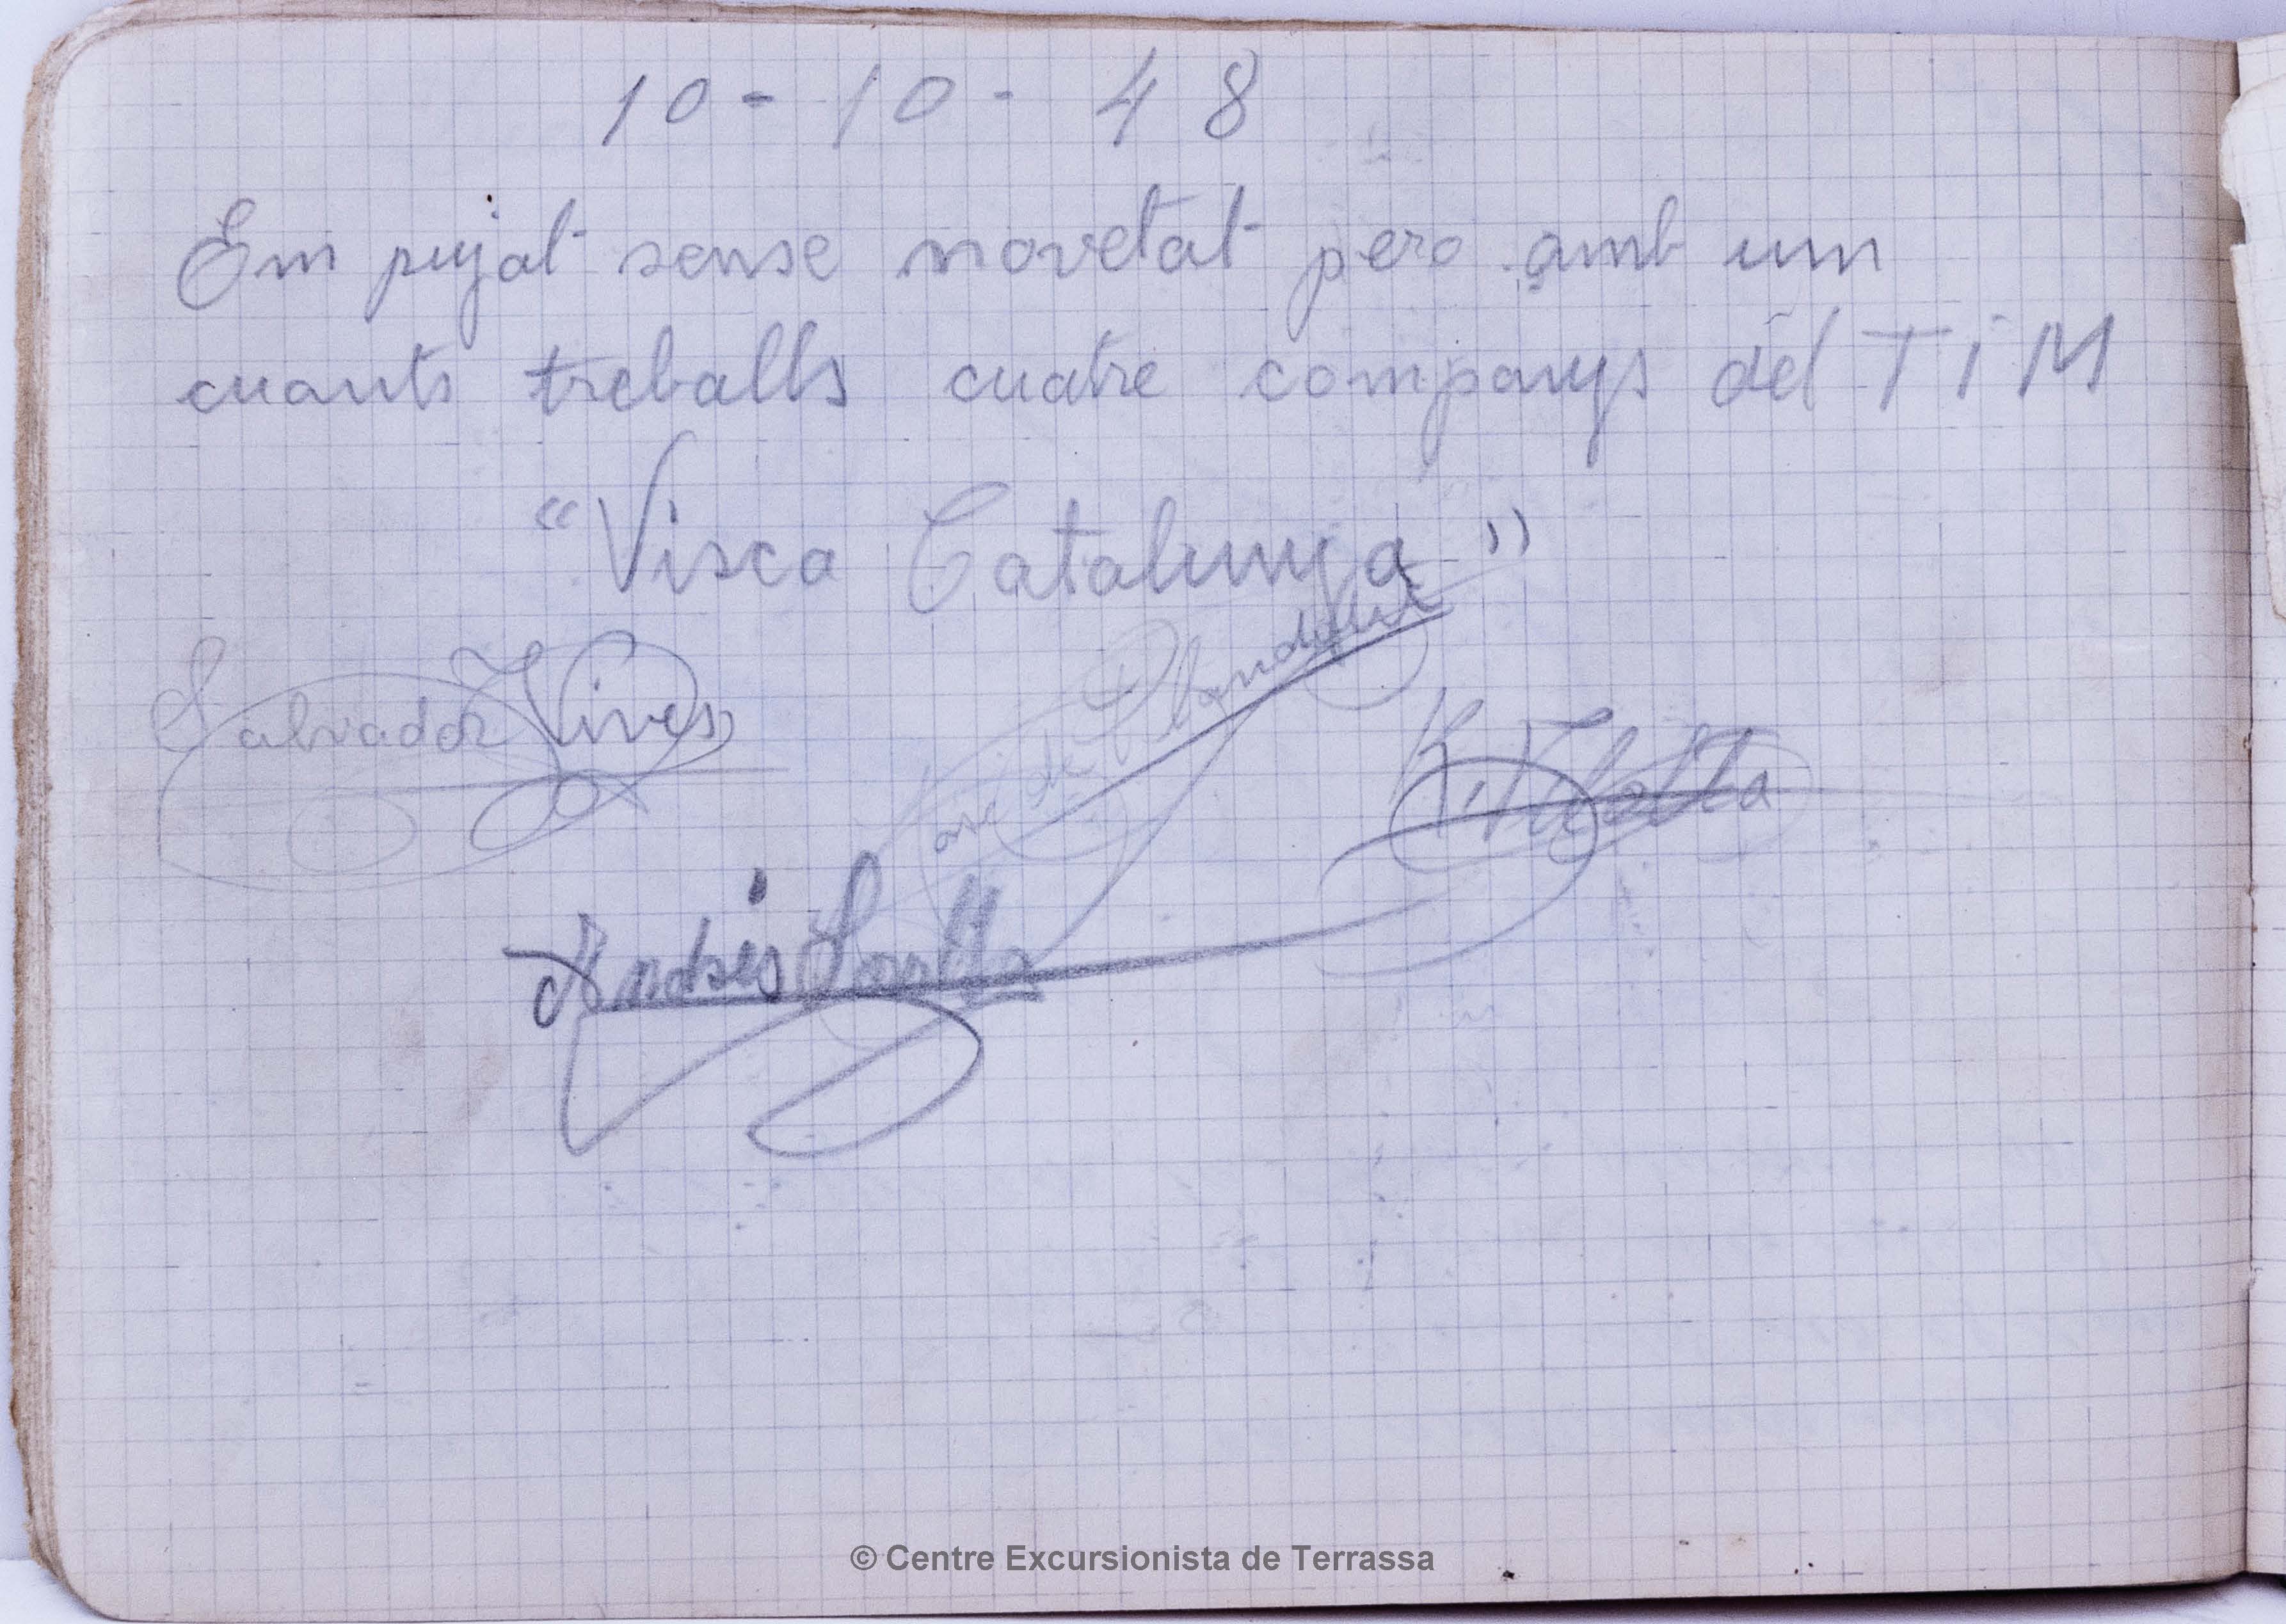 10 - 10 - 48
Em pujat sense novetat pero amb un
cuants treballs cuatre companys del T i M
“Visca Catalunya”
Salvador Vives
José de P.
Andrés
© Centre Excursionista de Terrassa